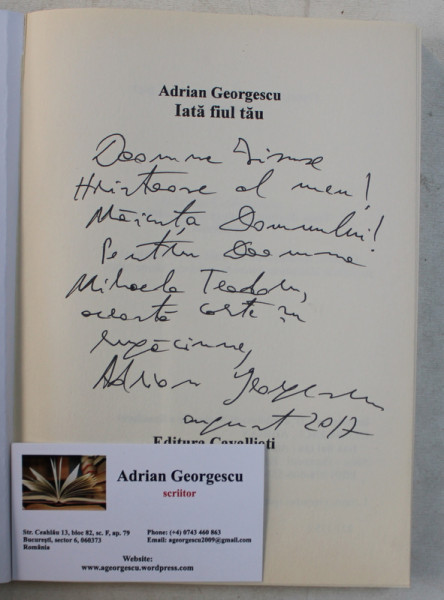 Adrian Georgescu
Iată fiul tău
Doamne Iisuse
Hristoase al meu!
Măicuța Domnului!
Pentru Doamna
Mihaela Teodor,
această carte în
rugăciune,
Adrian Georgescu
august 2017
Editura Cavallioti
Adrian Georgescu
scriitor
Str. Ceahlău 13, bloc 82, sc. F, ap. 79
București, sector 6, 060373
România
Phone: (+4) 0743 460 863
Email: ageorgescu2009@gmail.com
Website:
www.ageorgescu.wordpress.com